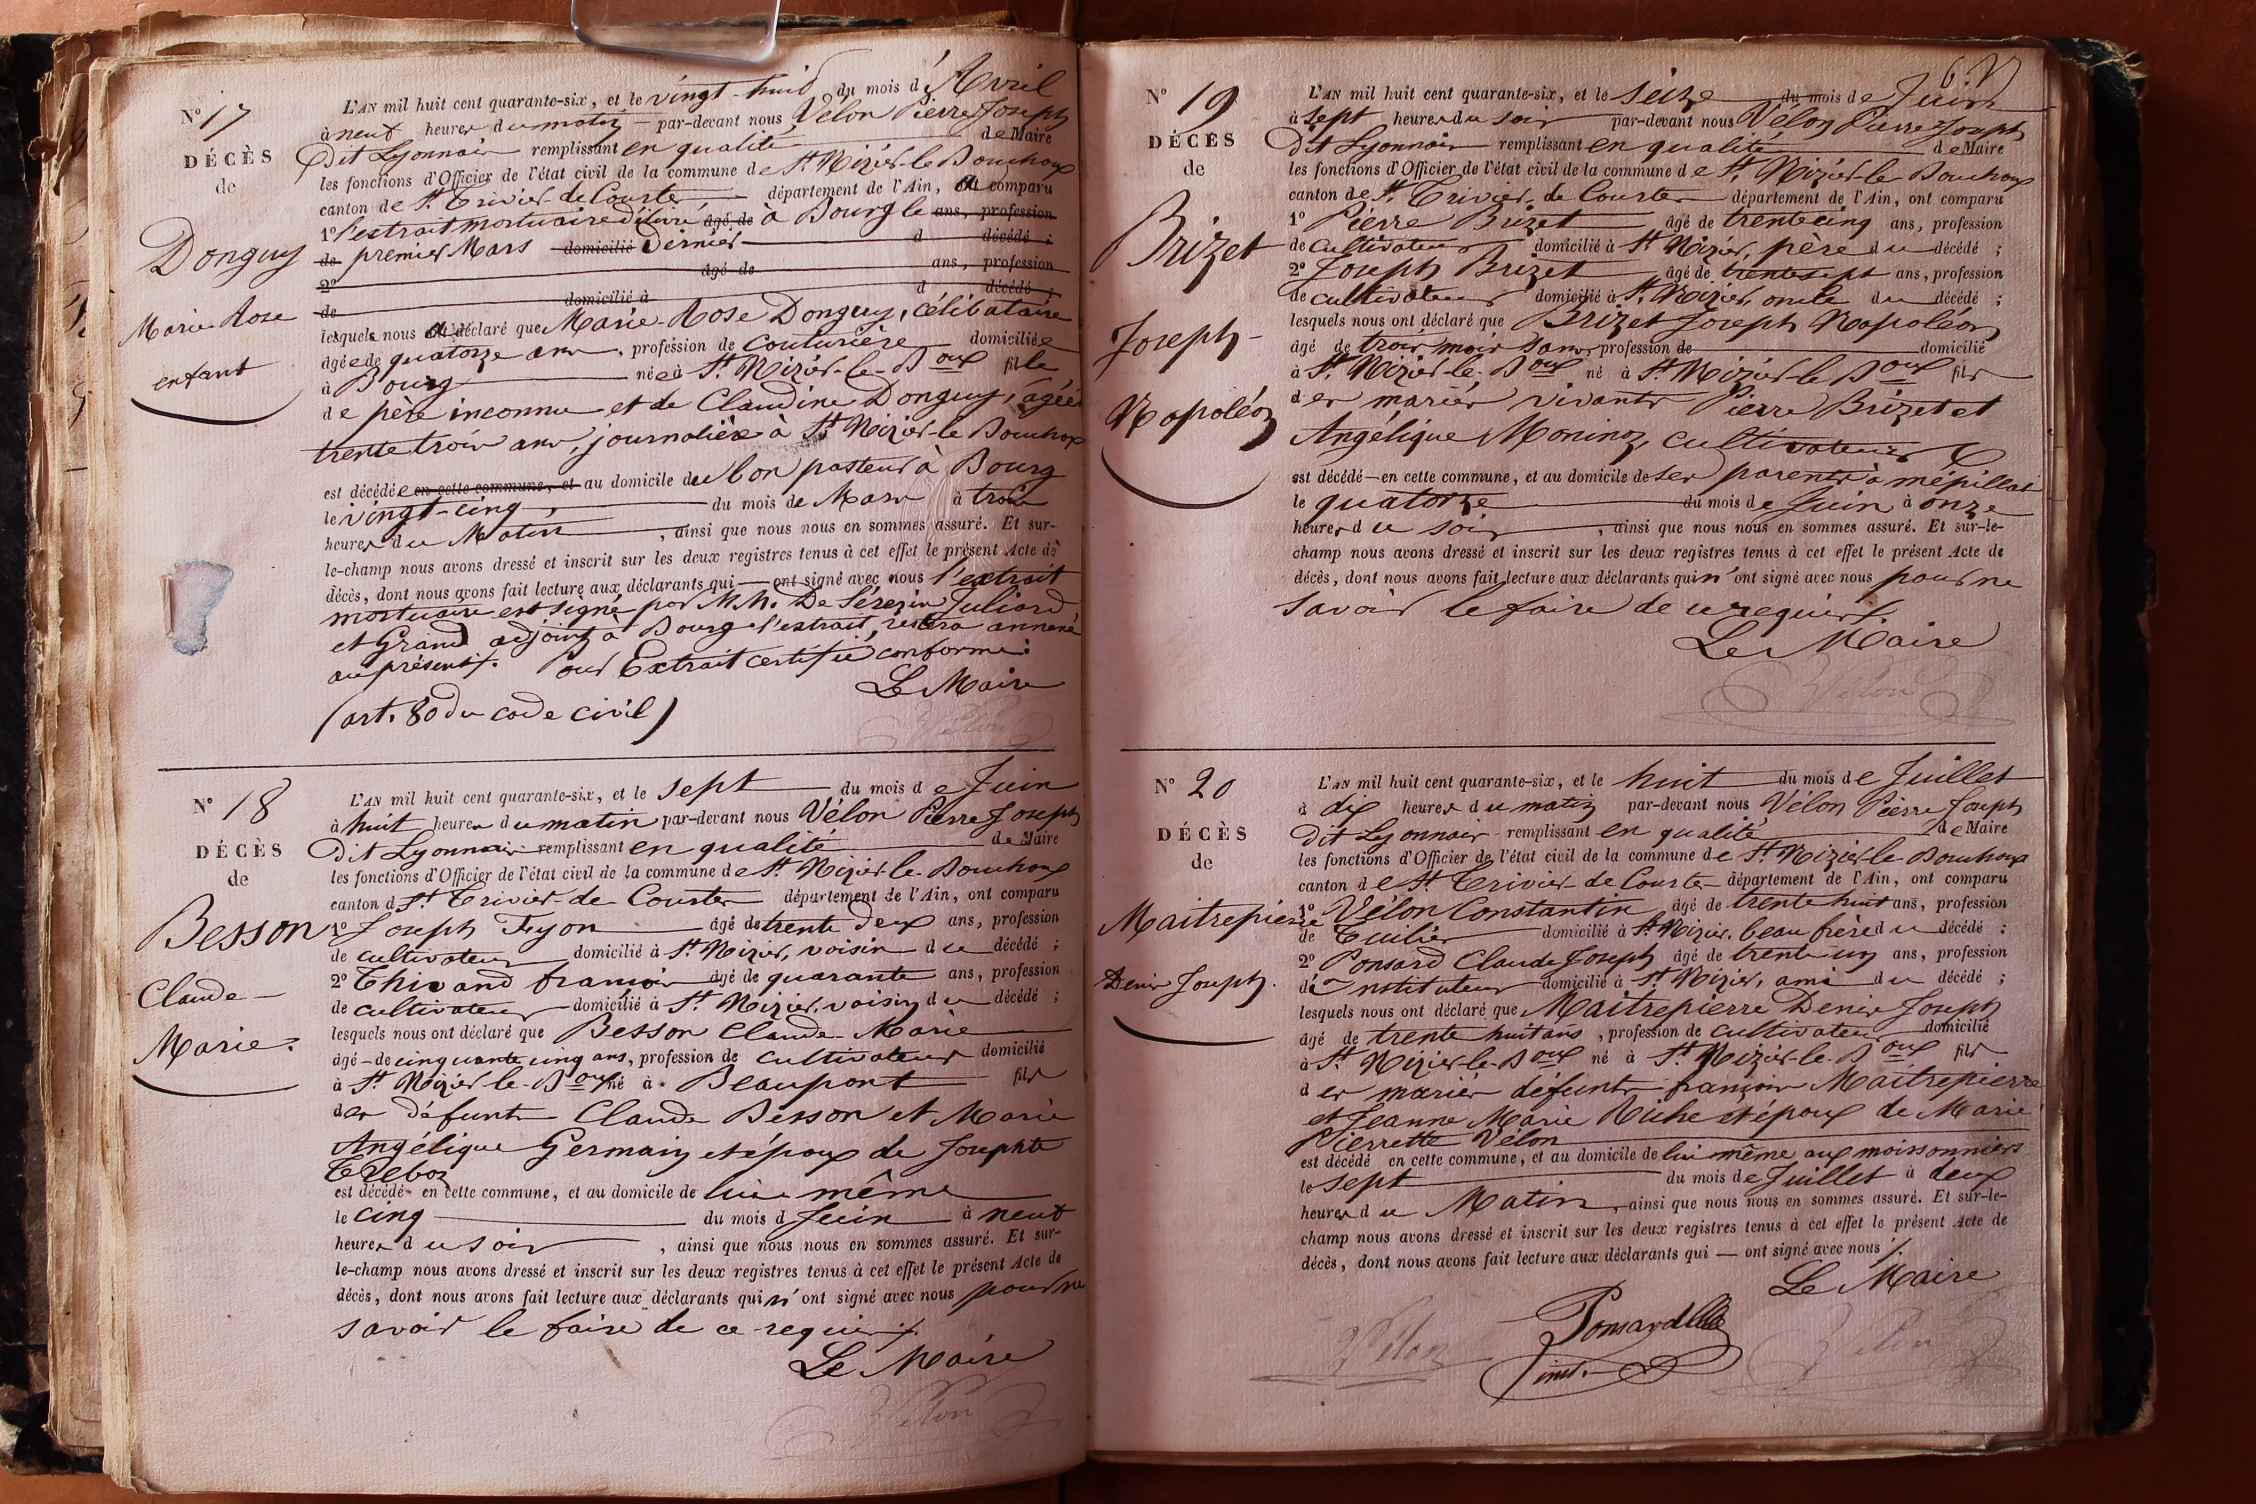 N° 17
DÉCÈS
de
Donguy
Marie Rose
enfant
L'AN mil huit cent quarante-six, et le vingt-huit du mois d'Avril
à neuf heures du matin par-devant nous Vélon Pierre Joseph
dit Lyonnais remplissant en qualité de Maire
les fonctions d'Officier de l'état civil de la commune de St. Nizier-le-Bouchoux
canton de St. Trivier-de-Courtes département de l'Ain, a comparu
1° l'extrait mortuaire délivré âgé de à Bourg le ans, profession
de premier Mars domicilié dernier d décédé ;
2° âgé de ans, profession
de domicilié à d décédé ;
lesquels nous a déclaré que Marie-Rose Donguy, célibataire
âgée de quatorze ans, profession de couturière domiciliée
à Bourg née à St. Nizier-le-Boux fille
de père inconnu et de Claudine Donguy, âgée
trente trois ans, journalière à St. Nizier-le Bouchoux
est décédée en cette commune, et au domicile du bon pasteur à Bourg
le vingt-cinq, du mois de Mars à trois
heures du Matin, ainsi que nous nous en sommes assuré. Et sur-
le-champ nous avons dressé et inscrit sur les deux registres tenus à cet effet le présent Acte de
décès, dont nous avons fait lecture aux déclarants qui — ont signé avec nous l'extrait
mortuaire est signé par M.M. De Sérezin Juliard
et Grand adjoint à Bourg l'extrait, restera annexé
au présent. Pour Extrait certifié conforme :
Le Maire
(art. 80 du code civil)
Vélon
N° 18
DÉCÈS
de
Besson
Claude
Marie.
L'AN mil huit cent quarante-six, et le sept du mois de Juin
à huit heures du matin par-devant nous Vélon Pierre Joseph
dit Lyonnais remplissant en qualité de Maire
les fonctions d'Officier de l'état civil de la commune de St. Nizier-le-Bouchoux
canton d St. Trivier-de-Courtes département de l'Ain, ont comparu
1° Joseph Fyon âgé de trente deux ans, profession
de cultivateur domicilié à St. Nizier, voisin du décédé ;
2° Thivand françois âgé de quarante ans, profession
de cultivateur domicilié à St. Nizier, voisin du décédé ;
lesquels nous ont déclaré que Besson Claude Marie
âgé de cinquante cinq ans, profession de cultivateur domicilié
à St. Nizier-le-Boux né à Beaupont fils
des défunts Claude Besson et Marie
Angélique Germain et époux de Josephte
Treboz
est décédé en cette commune, et au domicile de lui même
le cinq du mois d Juin à neuf
heures du soir, ainsi que nous nous en sommes assuré. Et sur-
le-champ nous avons dressé et inscrit sur les deux registres tenus à cet effet le présent Acte de
décès, dont nous avons fait lecture aux déclarants qui n'ont signé avec nous pour ne
savoir le faire de ce requis.
Le Maire
Vélon
6.
N° 19
DÉCÈS
de
Brizet
Joseph-
Napoléon
L'AN mil huit cent quarante-six, et le seize du mois de Juin
à sept heures du soir par-devant nous Vélon Pierre Joseph
dit Lyonnais remplissant en qualité de Maire
les fonctions d'Officier de l'état civil de la commune de St. Nizier-le-Bouchoux
canton de St. Trivier-de Courtes département de l'Ain, ont comparu
1° Pierre Brizet âgé de trente cinq ans, profession
de cultivateur domicilié à St. Nizier, père du décédé ;
2° Joseph Brizet âgé de trente sept ans, profession
de cultivateur domicilié à St. Nizier, oncle du décédé ;
lesquels nous ont déclaré que Brizet Joseph Napoléon
âgé de trois mois ans, profession de domicilié
à St. Nizier-le-Boux né à St. Nizier-le Boux fils
des mariés vivants Pierre Brizet et
Angélique Moninoz, cultivateurs
est décédé en cette commune, et au domicile de ses parents à mépillat
le quatorze du mois de Juin à onze
heures du soir, ainsi que nous nous en sommes assuré. Et sur-le-
champ nous avons dressé et inscrit sur les deux registres tenus à cet effet le présent Acte de
décès, dont nous avons fait lecture aux déclarants qui n'ont signé avec nous pour ne
savoir le faire de ce requis.
Le Maire
Vélon
N° 20
DÉCÈS
de
Maitrepierre
Denis Joseph.
L'AN mil huit cent quarante-six, et le huit du mois de Juillet
à dix heures du matin par-devant nous Vélon Pierre Joseph
dit Lyonnais remplissant en qualité de Maire
les fonctions d'Officier de l'état civil de la commune de St. Nizier-le-Bouchoux
canton de St. Trivier-de Courtes département de l'Ain, ont comparu
1° Vélon Constantin âgé de trente huit ans, profession
de Tuilier domicilié à St. Nizier, beau frère du décédé ;
2° Ponsard Claude Joseph âgé de trente un ans, profession
d'Instituteur domicilié à St. Nizier, ami du décédé ;
lesquels nous ont déclaré que Maitrepierre Denis Joseph
âgé de trente huit ans, profession de cultivateur domicilié
à St. Nizier-le-Boux né à St. Nizier-le-Boux fils
des mariés défunts françois Maitrepierre
et Jeanne Marie Riche et époux de Marie
Pierrette Vélon
est décédé en cette commune, et au domicile de lui même aux moissonniers
le sept du mois de Juillet à deux
heures du Matin, ainsi que nous nous en sommes assuré. Et sur-le-
champ nous avons dressé et inscrit sur les deux registres tenus à cet effet le présent Acte de
décès, dont nous avons fait lecture aux déclarants qui — ont signé avec nous.
Le Maire
Vélon Ponsard Vélon
inst.